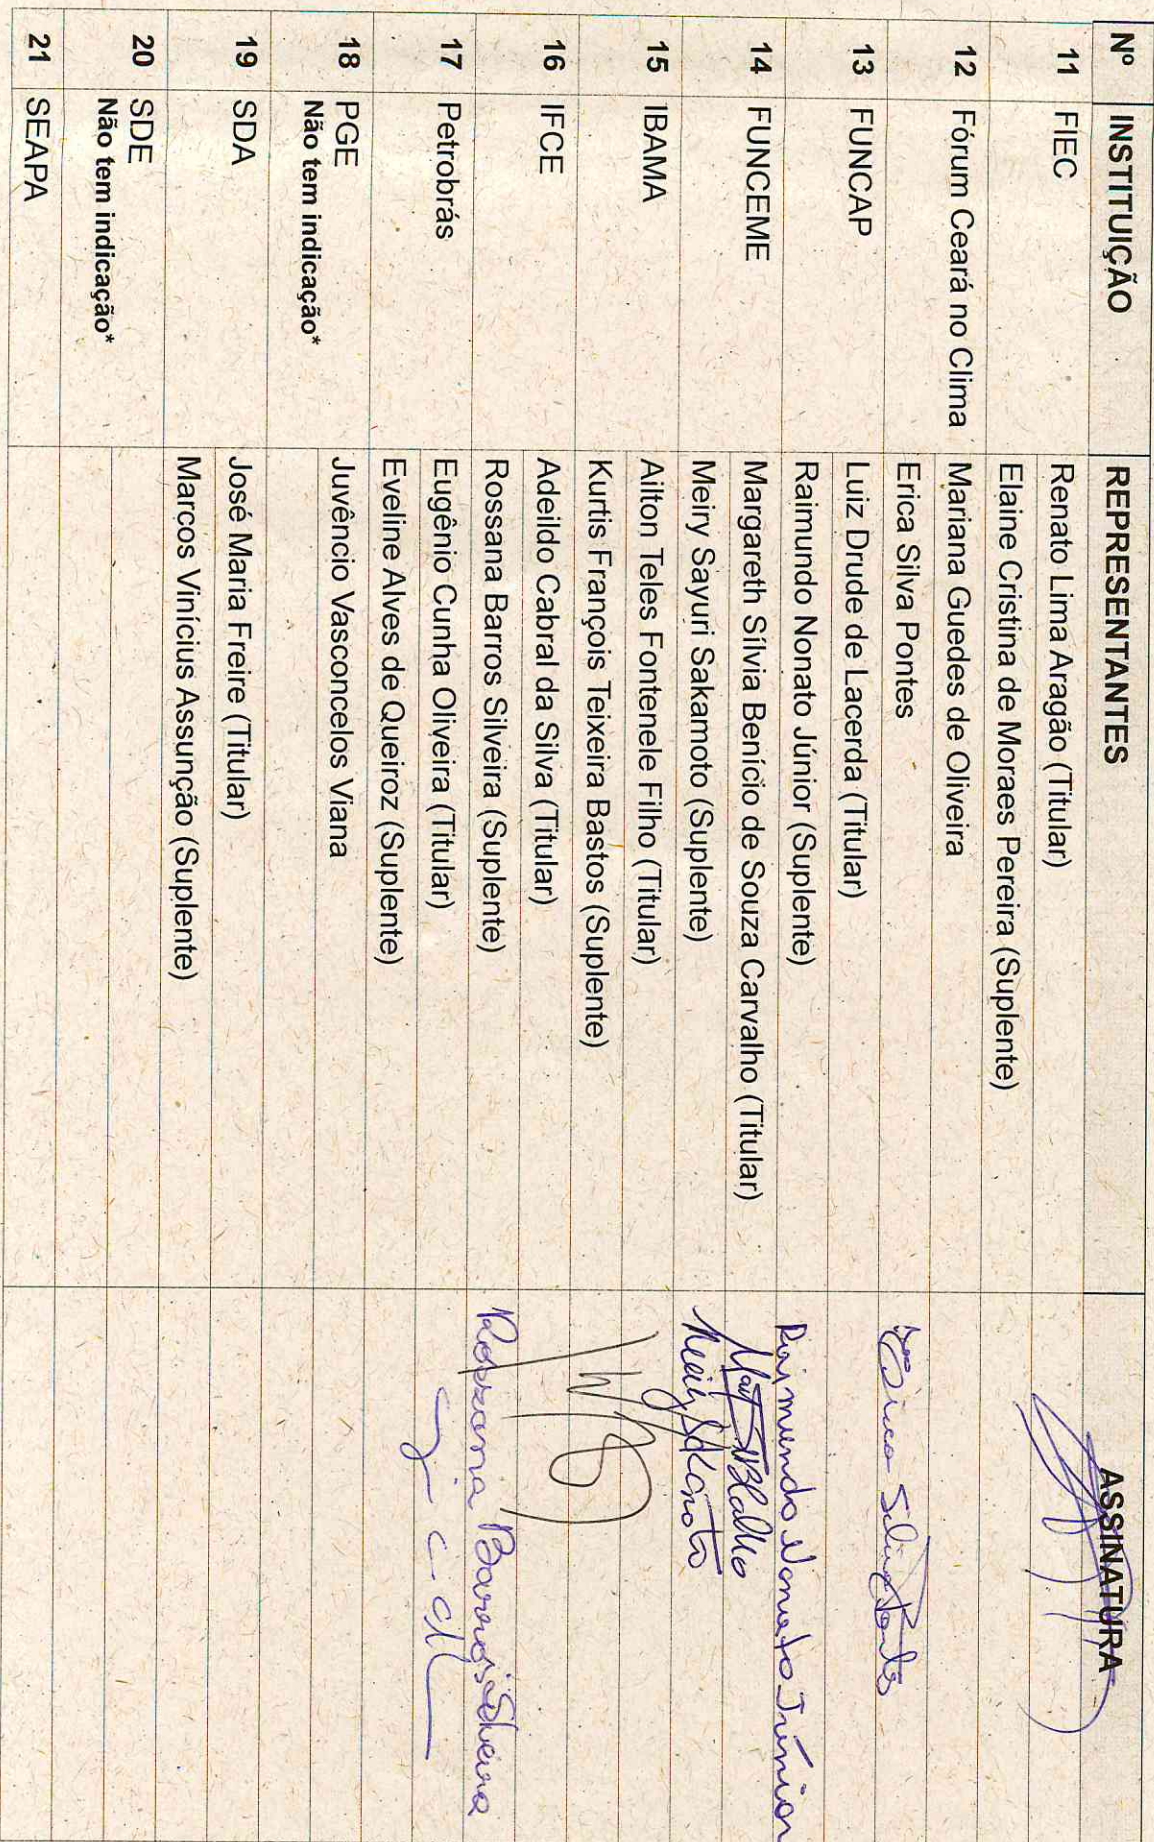 Nº INSTITUIÇÃO REPRESENTANTES ASSINATURA
11 FIEC Renato Lima Aragão (Titular)
Elaine Cristina de Moraes Pereira (Suplente)
12 Fórum Ceará no Clima Mariana Guedes de Oliveira
Erica Silva Pontes Erica Silva Pontes
13 FUNCAP Luiz Drude de Lacerda (Titular)
Raimundo Nonato Júnior (Suplente) Raimundo Nonato Júnior
14 FUNCEME Margareth Sílvia Benício de Souza Carvalho (Titular)
Meiry Sayuri Sakamoto (Suplente) Meiry Sakamoto
15 IBAMA Ailton Teles Fontenele Filho (Titular)
Kurtis François Teixeira Bastos (Suplente)
16 IFCE Adeildo Cabral da Silva (Titular)
Rossana Barros Silveira (Suplente) Rossana Barros Silveira
17 Petrobrás Eugênio Cunha Oliveira (Titular)
Eveline Alves de Queiroz (Suplente)
18 PGE Juvêncio Vasconcelos Viana
Não tem indicação*
19 SDA José Maria Freire (Titular)
Marcos Vinícius Assunção (Suplente)
20 SDE
Não tem indicação*
21 SEAPA